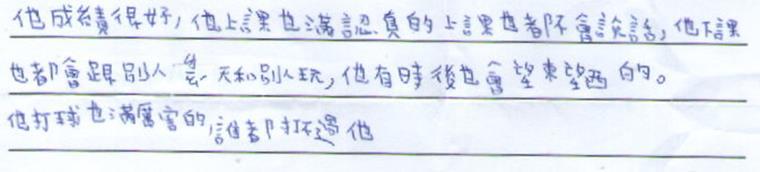 他成績很好,他上課也滿認真的上課也都不會說話,他下課
也都會跟別人 天和別人玩,他有時後也會望東望西的。
他打球也滿厲害的,誰都打不過他